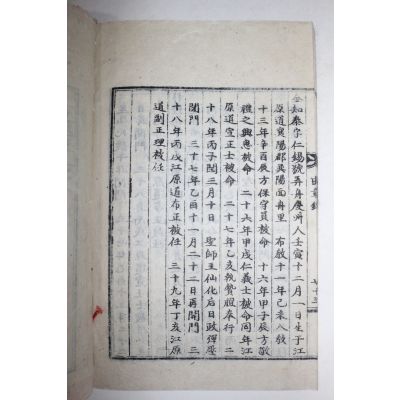 金知泰字仁錫號弄舟慶州人壬寅十二月一日生于江
原道襄陽郡巽陽面舟里 布敎十一年己未入敎
十三年辛酉辰方保守員被命 十六年甲子辰方敬
禮之興惠被命 二十六年甲戌仁義士被命同年江
原道宣正士被命 二十七年乙亥執贊服奉行 二
十八年丙子閏三月十日 聖師主仙化后日政彈壓
閉門 三十七年乙酉十一月二十二日再開門 三
十八年丙戌江原道布正被任 三十九年丁亥江原
道副正理被任
七十三